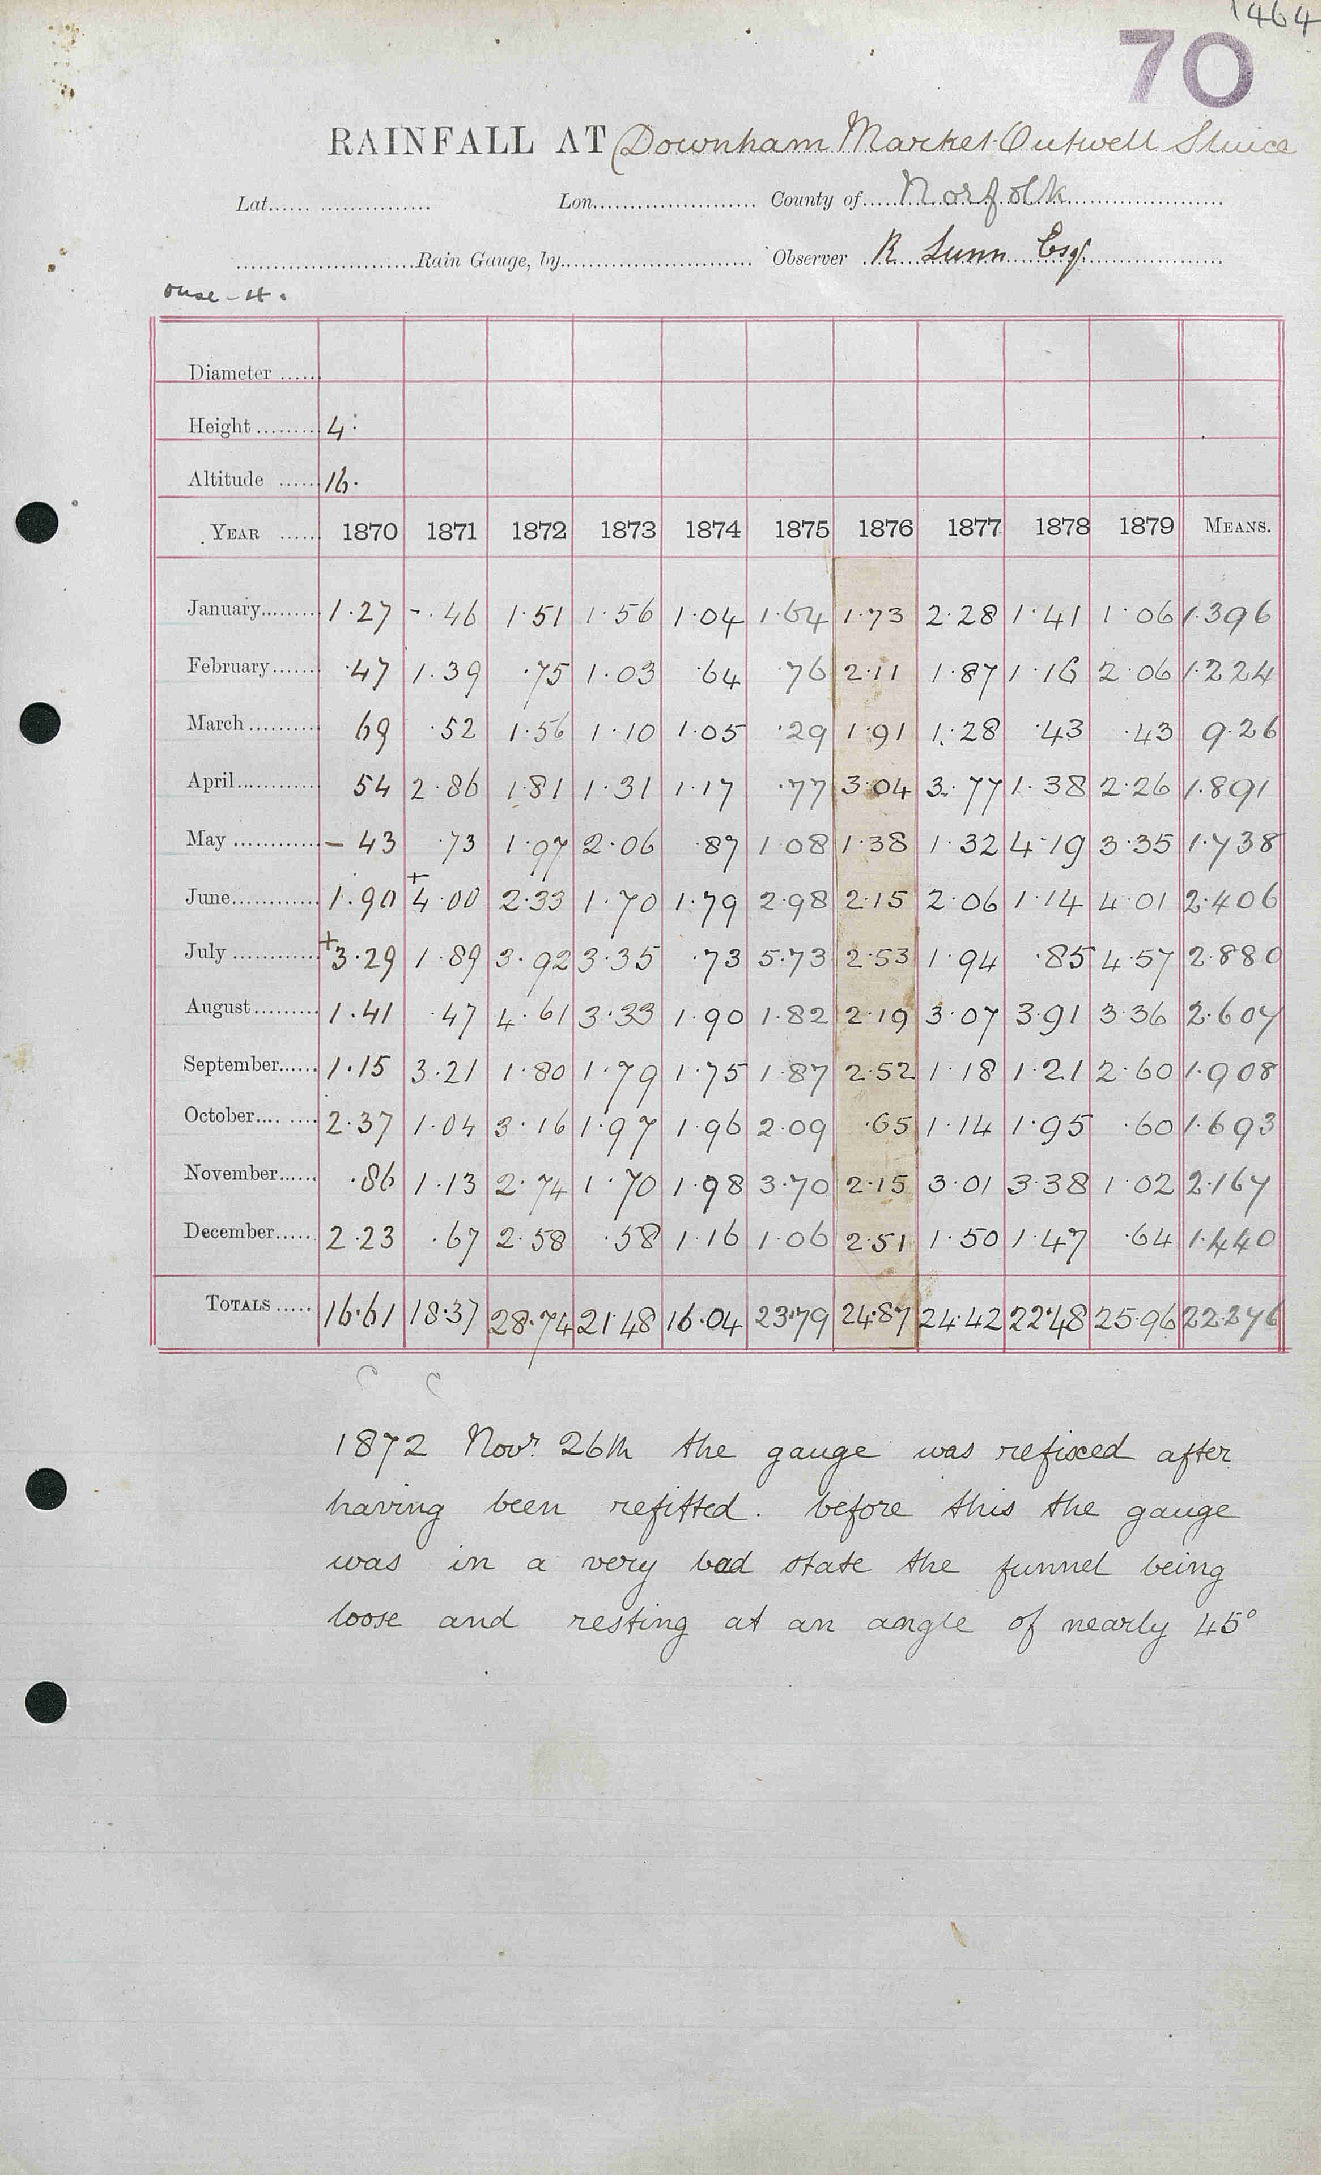 1464
70
RAINFALL AT Downham Market Outwell Sluice
Lat. Lon. County of Norfolk
Rain Gauge, by Observer R Lunn Esq.
ouse - 4.
Diameter
Height 4.
Altitude 16.
YEAR 1870 1871 1872 1873 1874 1875 1876 1877 1878 1879 MEANS.
January 1.27 -.46 1.51 1.56 1.04 1.64 1.73 2.28 1.41 1.06 1.396
February .47 1.39 .75 1.03 .64 .76 2.11 1.87 1.16 2.06 1.224
March 69 .52 1.56 1.10 1.05 .29 1.91 1.28 .43 .43 926
April 54 2.86 1.81 1.31 1.17 .77 3.04 3.77 1.38 2.26 1.891
May - 43 .73 1.97 2.06 .87 1.08 1.38 1.32 4.19 3.35 1.738
June 1.90 +4.00 2.33 1.70 1.79 2.98 2.15 2.06 1.14 4.01 2.406
July +3.29 1.89 3.92 3.35 .73 5.73 2.53 1.94 .85 4.57 2.880
August 1.41 .47 4.61 3.33 1.90 1.82 2.19 3.07 3.91 3.36 2.607
September 1.15 3.21 1.80 1.79 1.75 1.87 2.52 1.18 1.21 2.60 1.908
October 2.37 1.04 3.16 1.97 1.96 2.09 .65 1.14 1.95 .60 1.693
November .86 1.13 2.74 1.70 1.98 3.70 2.15 3.01 3.38 1.02 2.167
December 2.23 .67 2.58 .58 1.16 1.06 2.51 1.50 1.47 .64 1.440
TOTALS 16.61 18.37 28.74 21.48 16.04 23.79 24.87 24.42 22.48 25.96 22.276
C C
1872 Novr. 26th the gauge was refixed after
having been refitted. before this the gauge
was in a very bad state the funnel being
loose and resting at an angle of nearly 45°